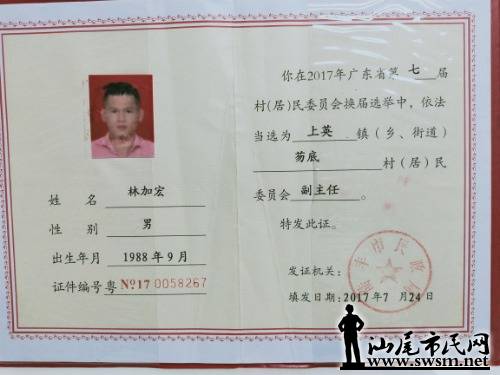 姓名 林加宏
性别 男
出生年月 1988年9月
证件编号粤 №17 0058267
你在2017年广东省第 七 届
村(居)民委员会换届选举中，依法
当选为 上英 镇(乡、街道)
笏底 村(居)民
委员会 副主任 。
特发此证。
发证机关：
填发日期：2017年7月24日
汕尾市民网
www.swsm.net